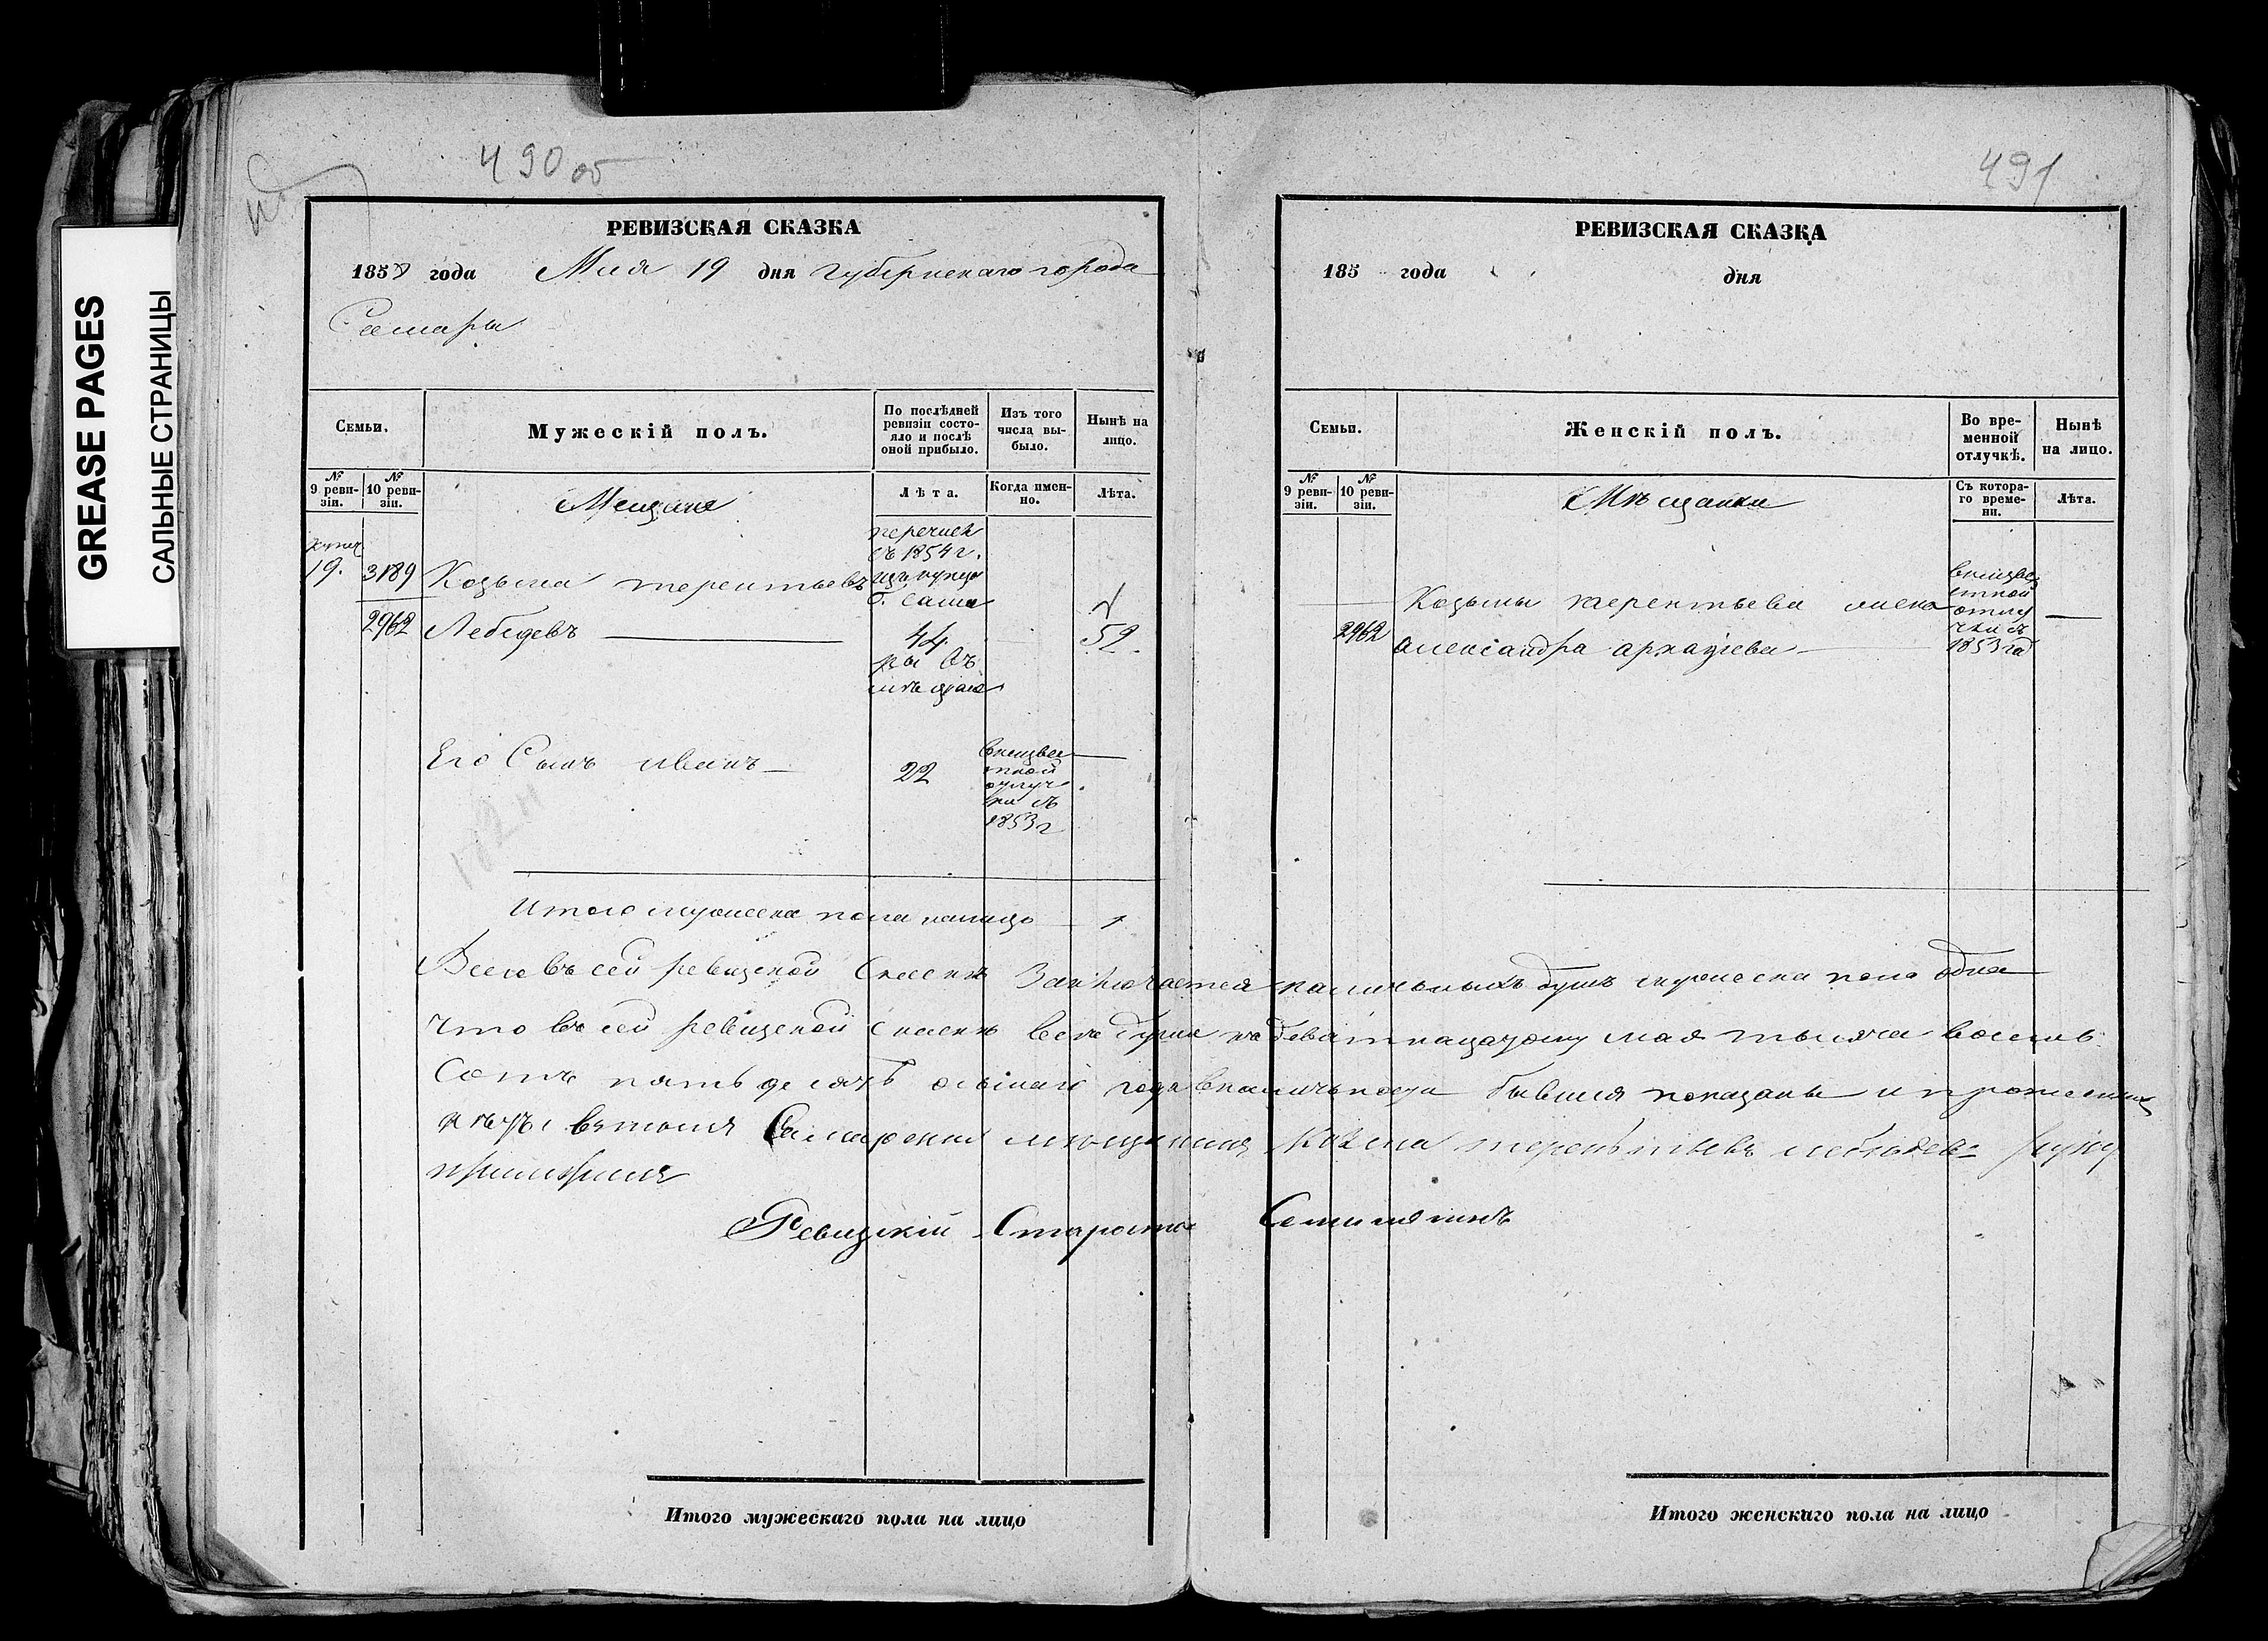 GREASE PAGES
САЛЬНЫЕ СТРАНИЦЫ
490 об
РЕВИЗСКАЯ СКАЗКА
1858 года Мая 19 дня губернскаго города
Самары
Семьи.
Мужескій полъ.
По послѣдней
ревизіи состо-
яло и послѣ
оной прибыло.
Изъ того
числа вы-
было.
Нынѣ на
лицо.
№
9 реви-
зіи.
№
10 реви-
зіи.
Мещане
Лѣта.
Когда имен-
но.
Лѣта.
перечисл
съ 1854 г.
изъ купцо
г. Сама
19. 3189 Козьма терентьевъ
2962 Лебедевъ
44
52.
ры въ
мѣщане
Его Сынъ иванъ
22
внеизвес
тной
отлуч
ки съ
1853 г
Итого мужеска пола налицо 1
Всего въ сей ревизской Сказкѣ Заключается наличныхъ душъ мужеска пола одна
что въ сей ревизской сказкѣ все души къ девятнацатому мая тысяча восемь
Сотъ пять десятъ осьмаго года вналичности бывшия показаны и прописных
нѣтъ втомъ Самарский мещанинъ Козма терентьевъ лебедевъ руку
приложилъ
Ревизскій Староста
Итого мужескаго пола на лицо
491
РЕВИЗСКАЯ СКАЗКА
185 года дня
Семьи.
Женскій полъ.
Во вре-
менной
отлучкѣ.
Нынѣ
на лицо.
№
9 реви-
зіи.
№
10 реви-
зіи.
Мѣщанки
Съ котора-
го време-
ни.
Лѣта.
Козьмы терентьева жена
2962 александра
внеизвес
тной
отлу
чки съ
1853 год
Итого женскаго пола на лицо